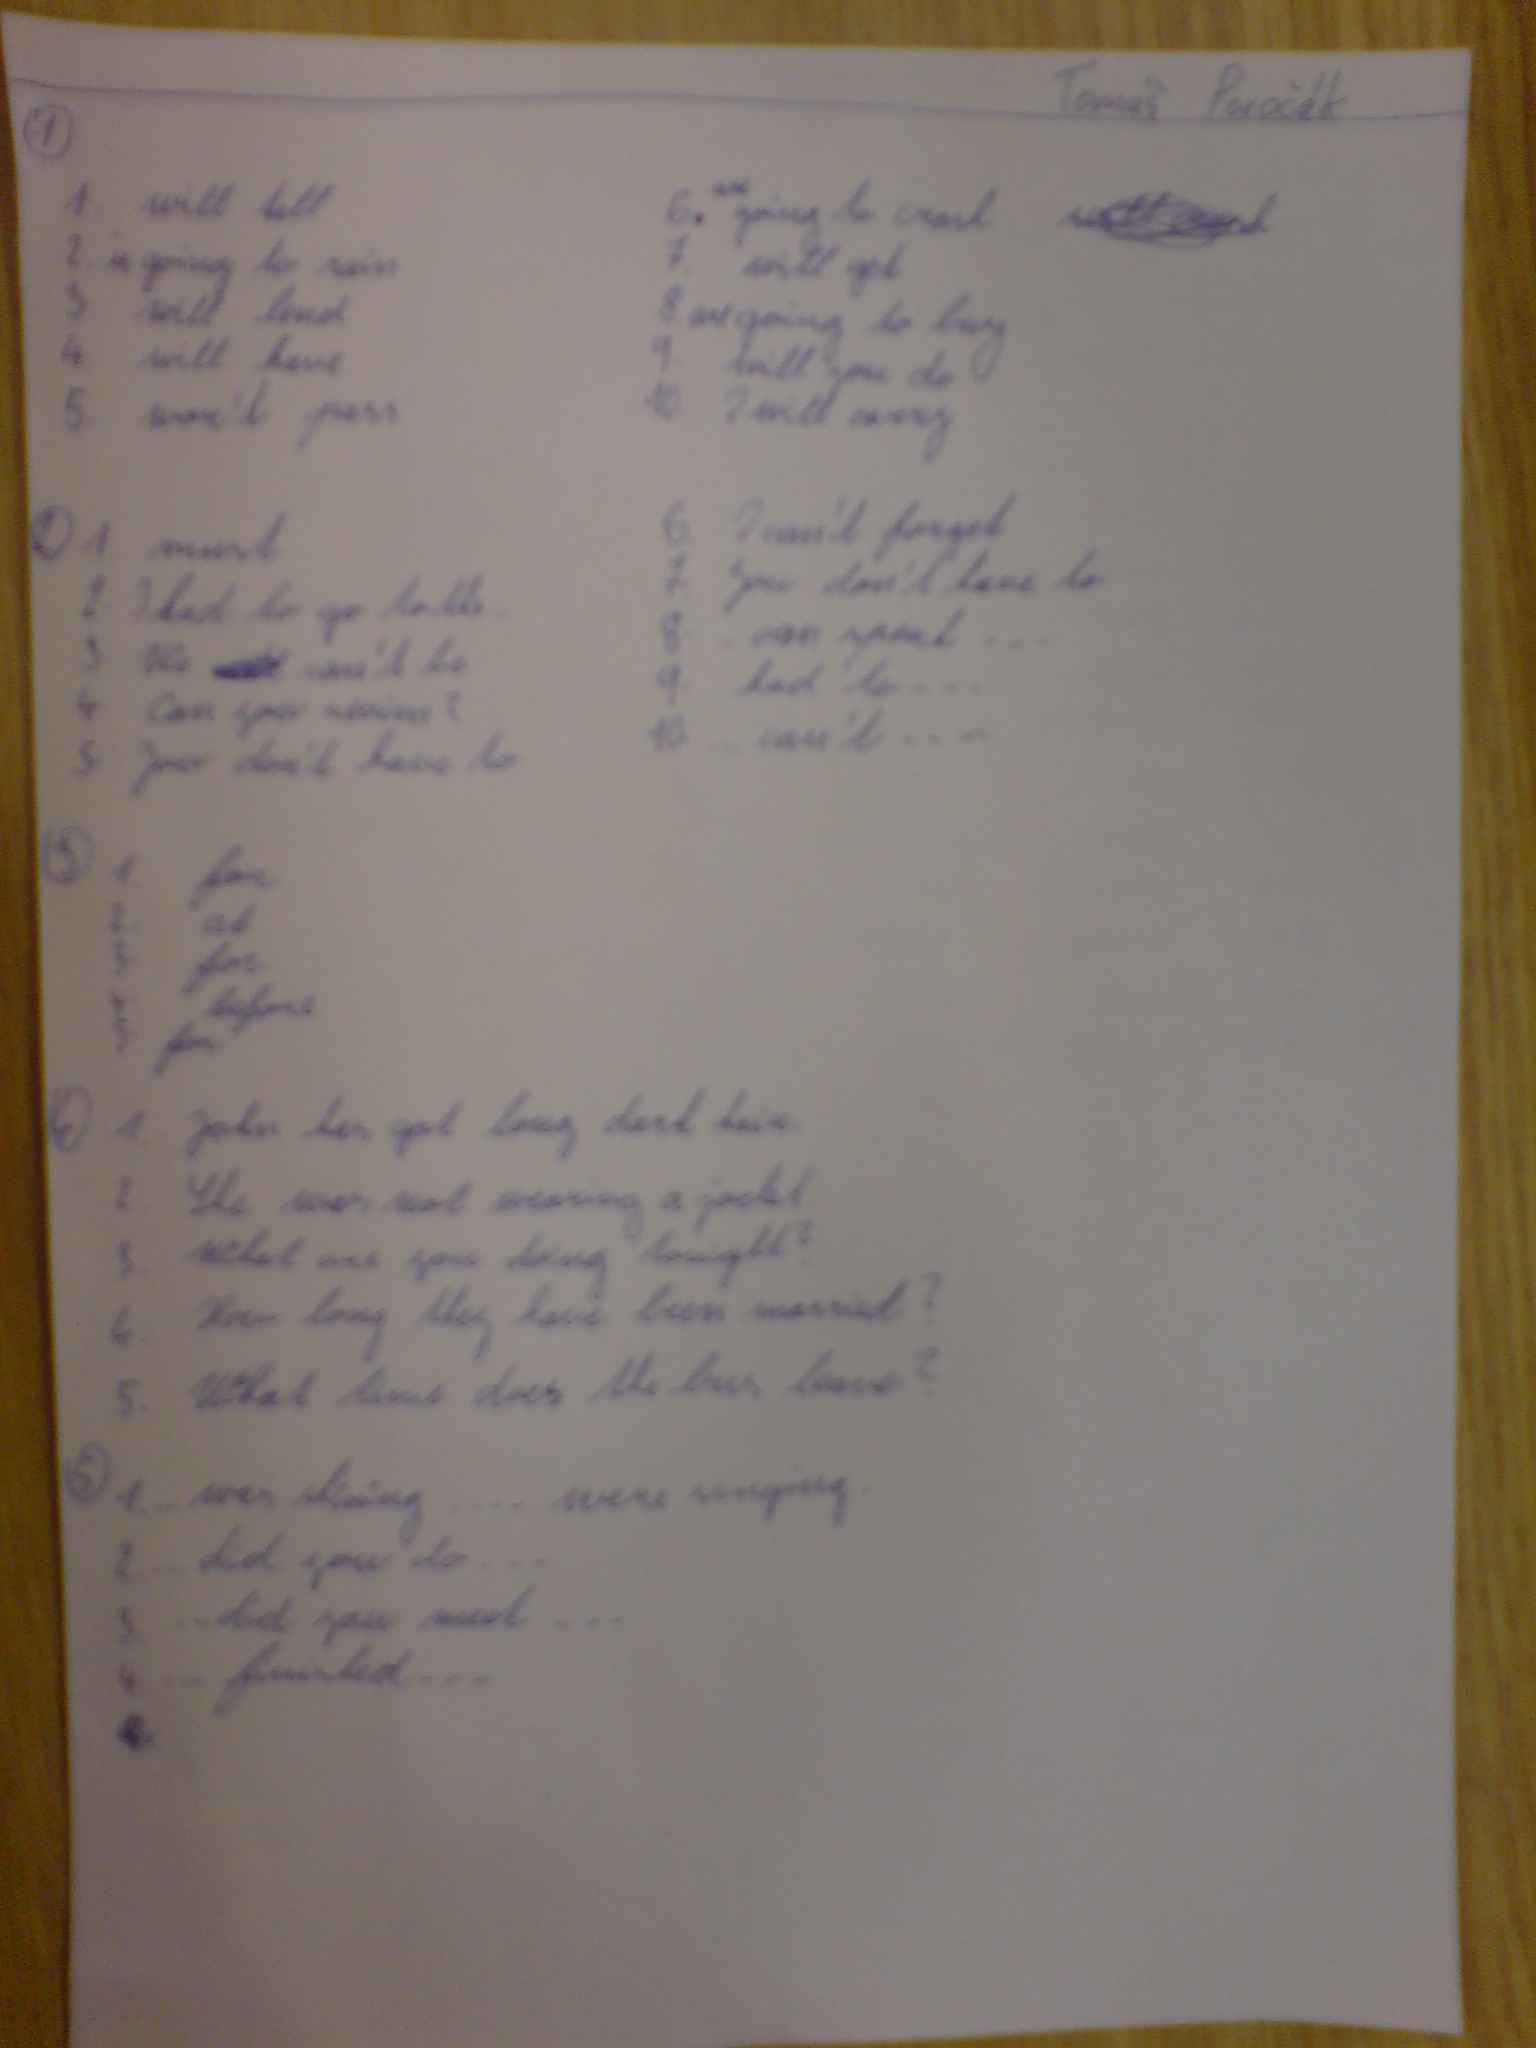 Tomáš
1
1. will tell
2. is going to rain
3 will lend
4 will have
5. won't pass
6. are going to crash
7. will get
8 are going to buy
9. will you do
10. I will carry
2 1. must
2. I had to go to the..
3 We can't be
4 Can you swim?
5 You don't have to
6. I can't forget
7. You don't have to
8 .. can speak ...
9. had to ...
10 .. can't ...
3 1. for
2. at
3 for
4 before
5 for
4 1. John has got long dark hair.
2. She was not wearing a jacket.
3. What are you doing tonight?
4. How long they have been married?
5. What time does the bus leave?
5 1... was shining .... were singing.
2... did you to ...
3. ...did you meet ...
4 ... finished ...